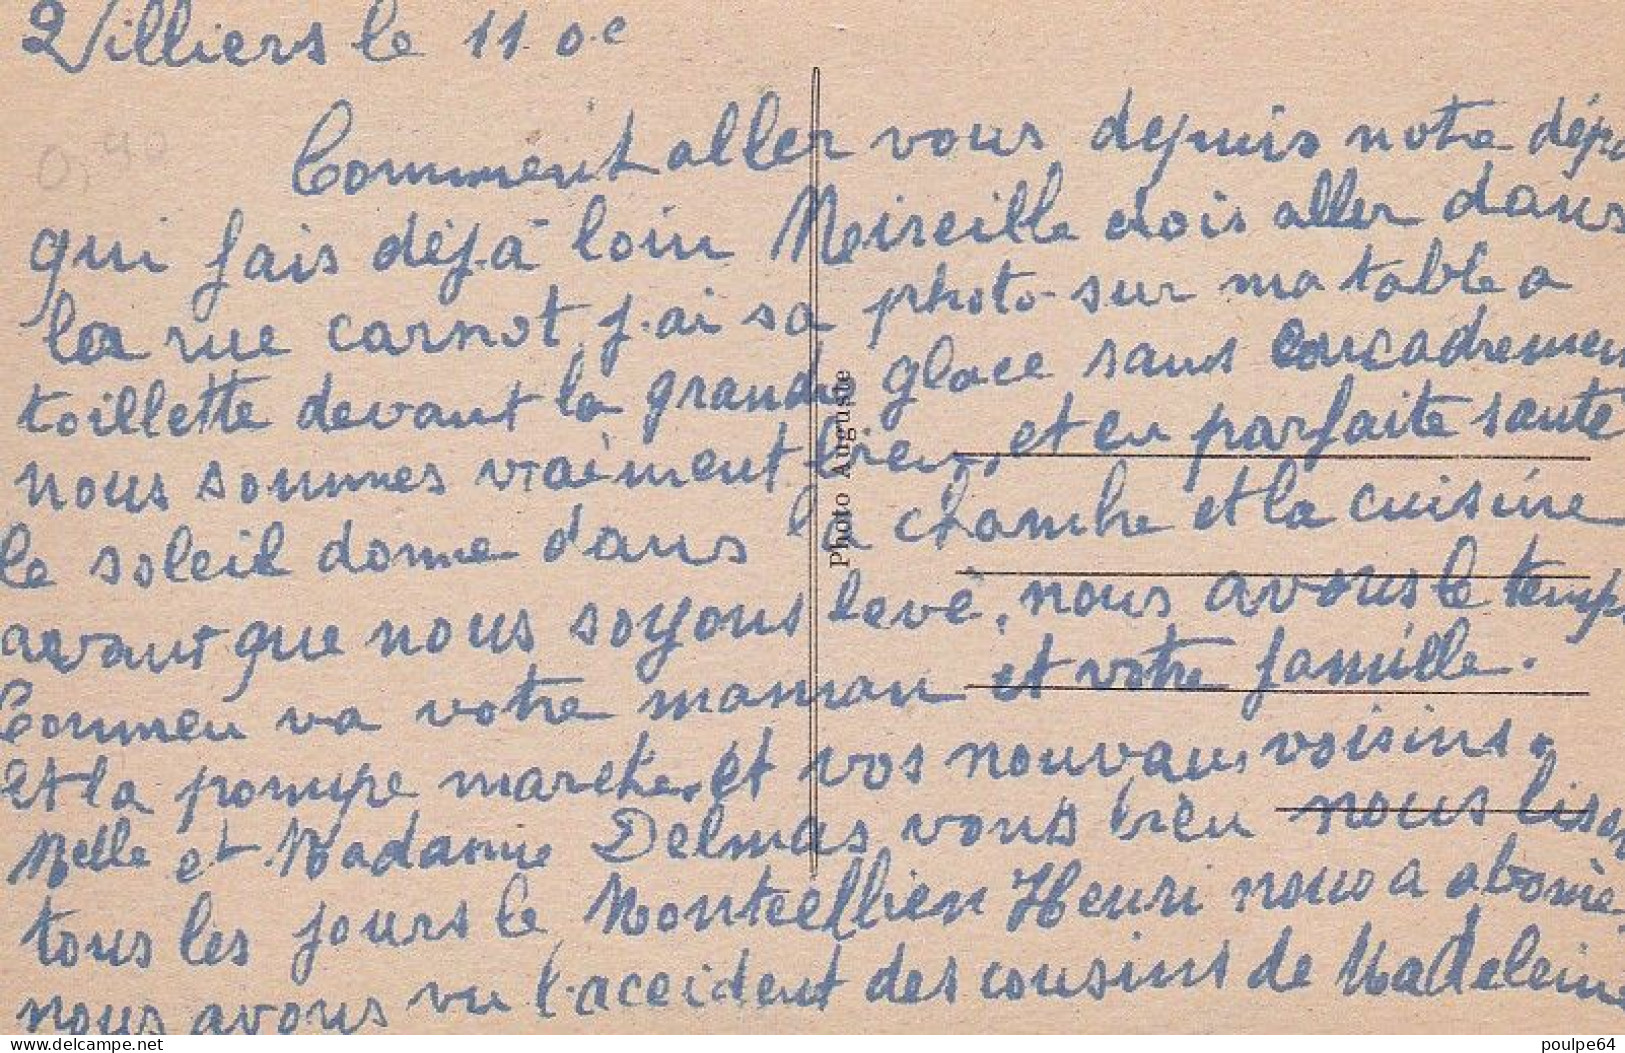 Villiers le 11 oc
0,40
Comment aller vous depuis notre dépa
qui fais déjà loin Mireille dois aller dans
la rue carnot, j.ai sa photo sur ma table a
toillette devant la grande glace sans encadremen
nous sommes vraiment bien, et en parfaite santé
le soleil donne dans la chambre et la cuisine
avant que nous soyons levé, nous avons le temps
Commen va votre maman et votre famille.
et la pompe marche, et vos nouvaux voisins.
Melle et Madame Delmas vous bien nous lison
tous les jours le Montcellien Henri nous a abonné
nous avons vu l'accident des cousins de Madeleine
Photo Auguste
delcampe.net
poulpe64